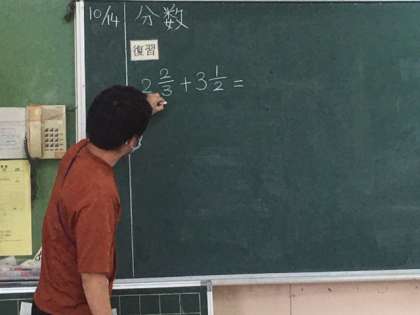 10/14 分数
復習
2 2/3 + 3 1/2 =